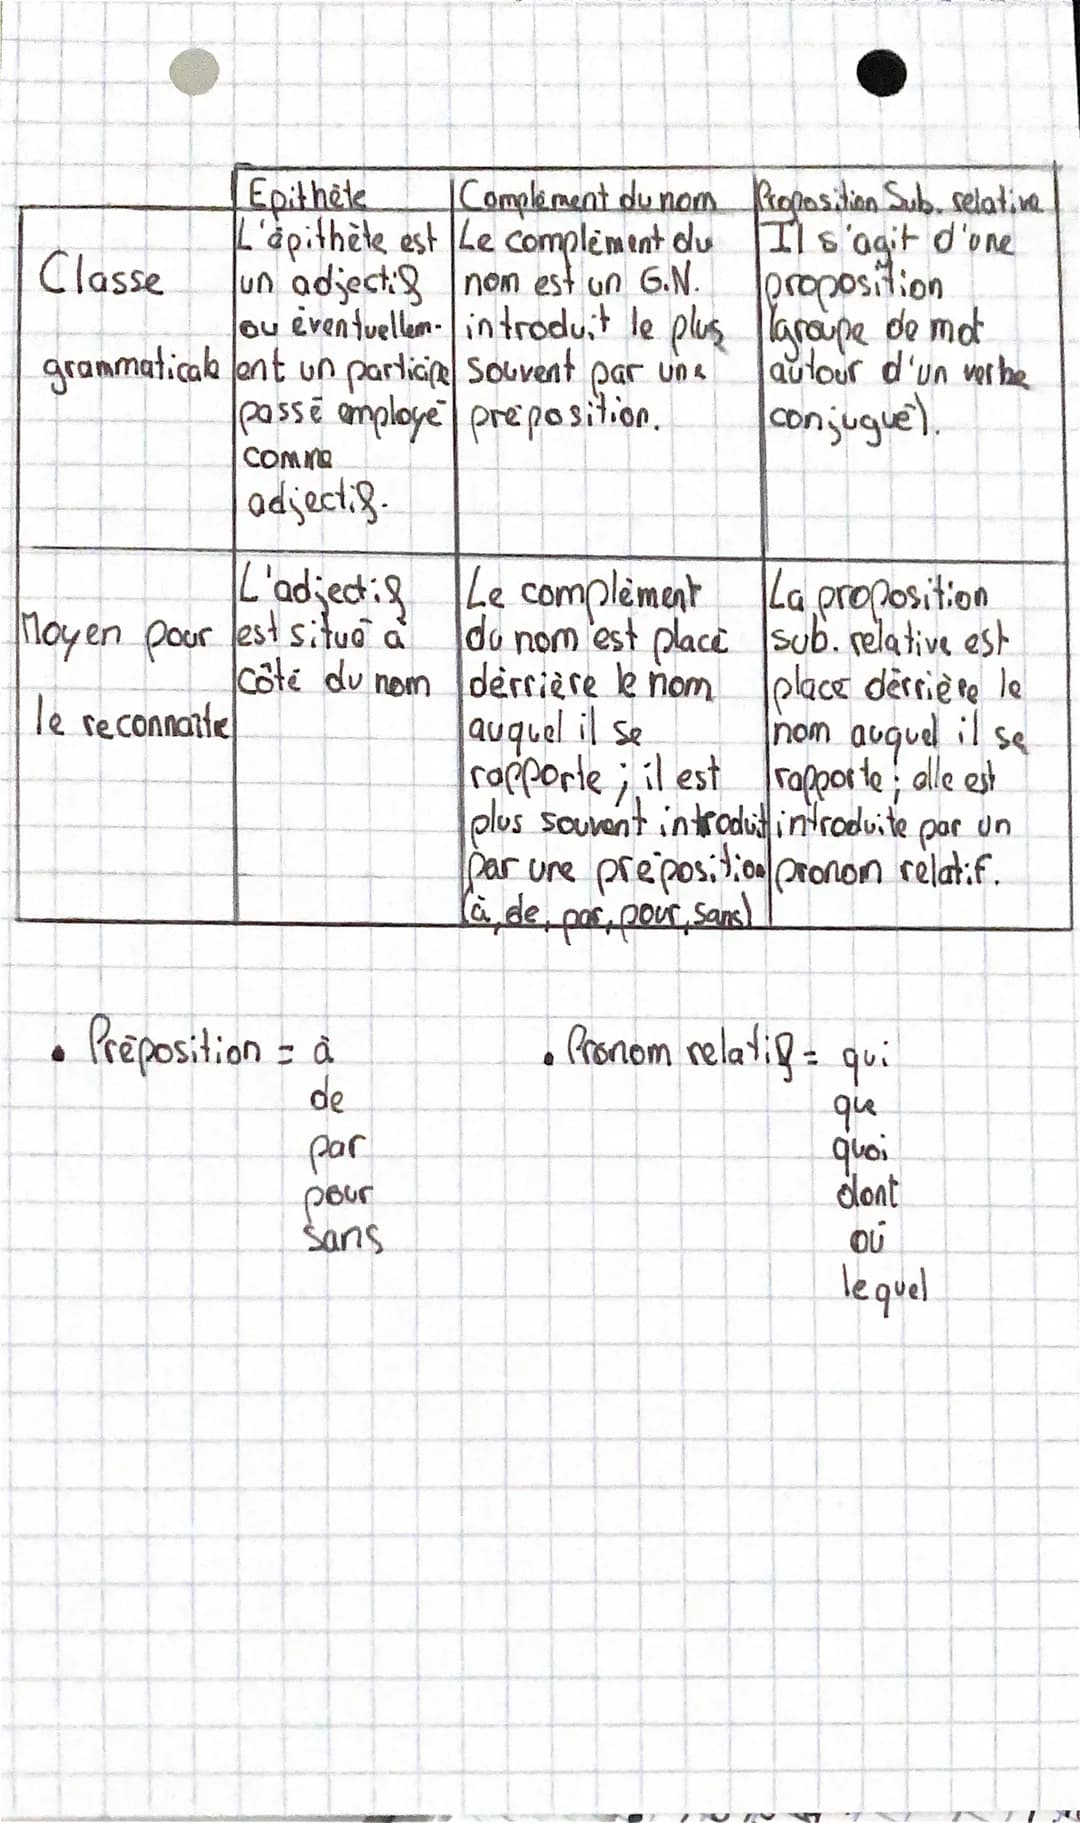 Epithète
L'épithète est
un adjectif
ou éventuellem-
ent un participe
passé employé
comme
adjectif.
Complément du nom
Le complément du
nom est un G.N.
introduit le plus
souvent par une
préposition.
Proposition Sub. relative
Il s'agit d'une
proposition
(groupe de mot
autour d'un verbe
conjugué).
Classe
grammaticale
Moyen pour
le reconnaîte
L'adjectif
est situé à
côté du nom
Le complément
du nom est placé
dérrière le nom
auquel il se
rapporte ; il est
plus souvent introduit
par une préposition
(à, de, par, pour, sans)
La proposition
sub. relative est
place dérrière le
nom auquel il se
rapporte ; elle est
introduite par un
pronom relatif.
• Préposition = à
de
par
pour
sans
• Pronom relatif = qui
que
quoi
dont
où
lequel